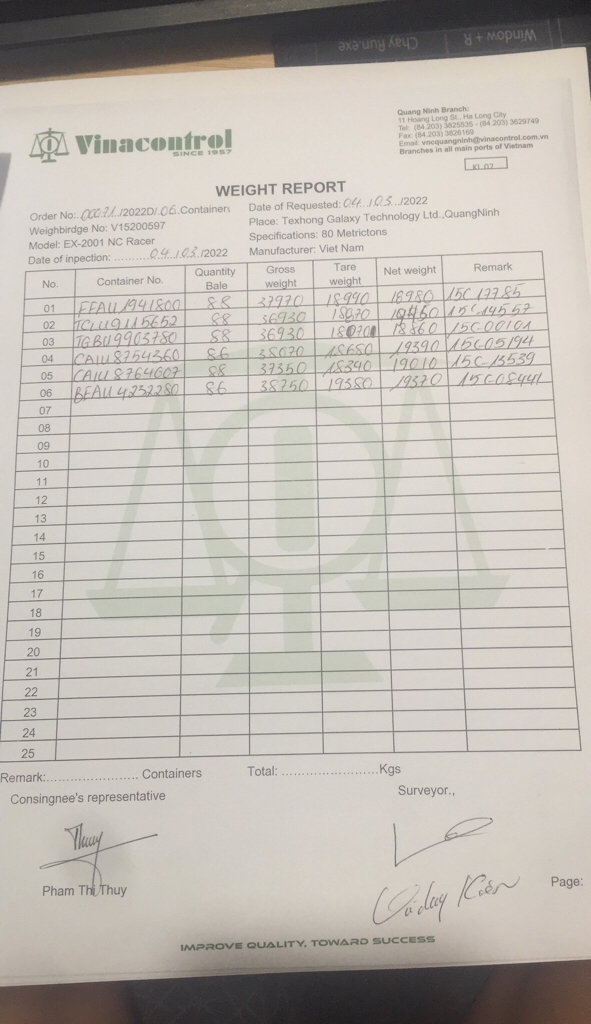 Window + R
Chạy Run.exe
Vinacontrol
SINCE 1957
Quang Ninh Branch:
11 Hoang Long St., Ha Long City
Tel: (84.203) 3825535 - (84 203) 3629749
Fax: (84.203) 3826169
Email: vncquangninh@vinacontrol.com.vn
Branches in all main ports of Vietnam
KL 02
WEIGHT REPORT
Order No: 00071 /2022D/ 06 Containers
Date of Requested: 04 / 03 /2022
Weighbirdge No: V15200597
Place: Texhong Galaxy Technology Ltd.,QuangNinh
Model: EX-2001 NC Racer
Specifications: 80 Metrictons
Date of inpection: 04 / 03 /2022
Manufacturer: Viet Nam
No. Container No. Quantity Bale Gross weight Tare weight Net weight Remark
01 FFAU 1941800 88 37970 18990 18980 15C 17785
02 TCLU 9115652 88 36930 18670 15C 14557
03 TGBU 9903780 88 36930 18860 15C 00101
04 CAIU 8754360 86 38070 18680 19390 15C05194
05 CAIU 8764607 88 37350 18340 19010 15C-13539
06 BEAU 4232280 86 38750 19380 19370 15C08441
07
08
09
10
11
12
13
14
15
16
17
18
19
20
21
22
23
24
25
Remark:........................ Containers Total: ........................Kgs
Consingnee's representative Surveyor.,
Thuy
Pham Thi Thuy
Page:
IMPROVE QUALITY, TOWARD SUCCESS